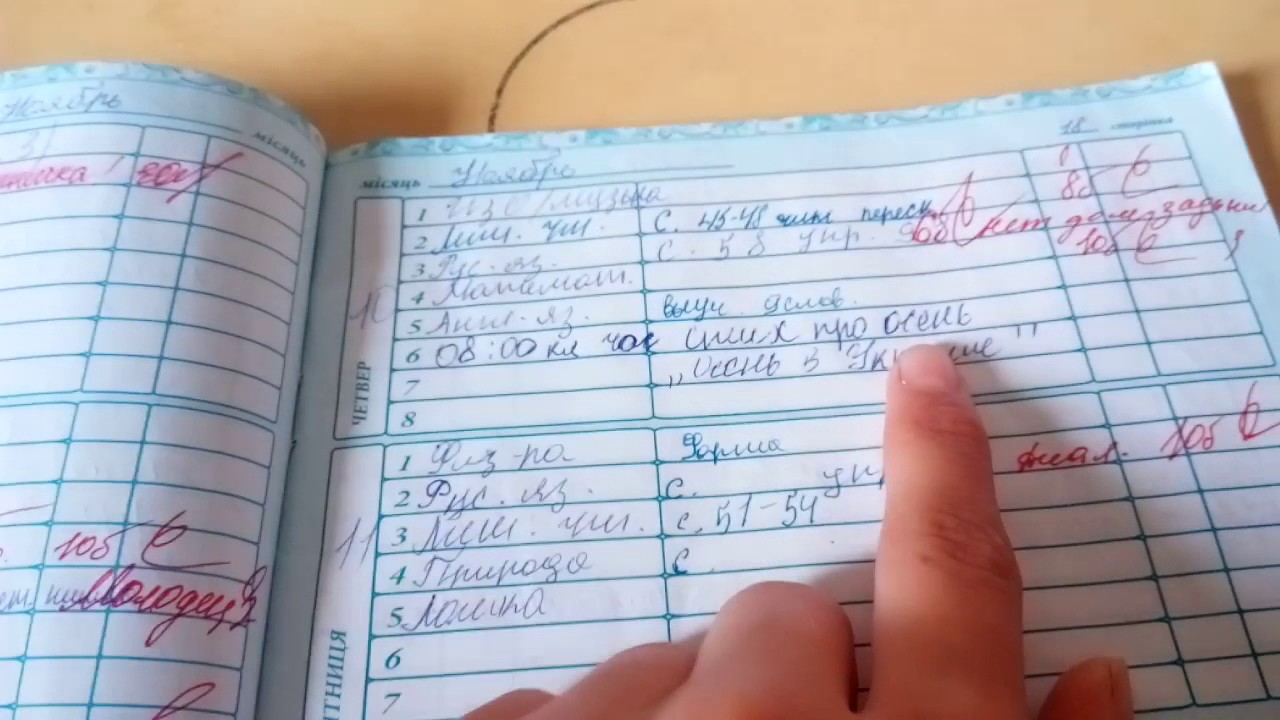 Ноябрь
місяць
Молодец
10б
місяць Ноябрь 18 сторінка
ЧЕТВЕР 10
1 ИЗО/музыка
2 Лит. чт. с. 45-48 переск 8б
3 Рус. яз. с. 58 упр. 10б нет дом. задания
4 Математ. 10б
5 Англ. яз. выуч. слов.
6 08:00 кл час стих про осень
7 "Осень в
8
11
1 Физ-ра Форма
2 Рус. яз. с. упр 10б
3 Лит. чт. с. 51-54
4 Природа с.
5 Логика
6
7